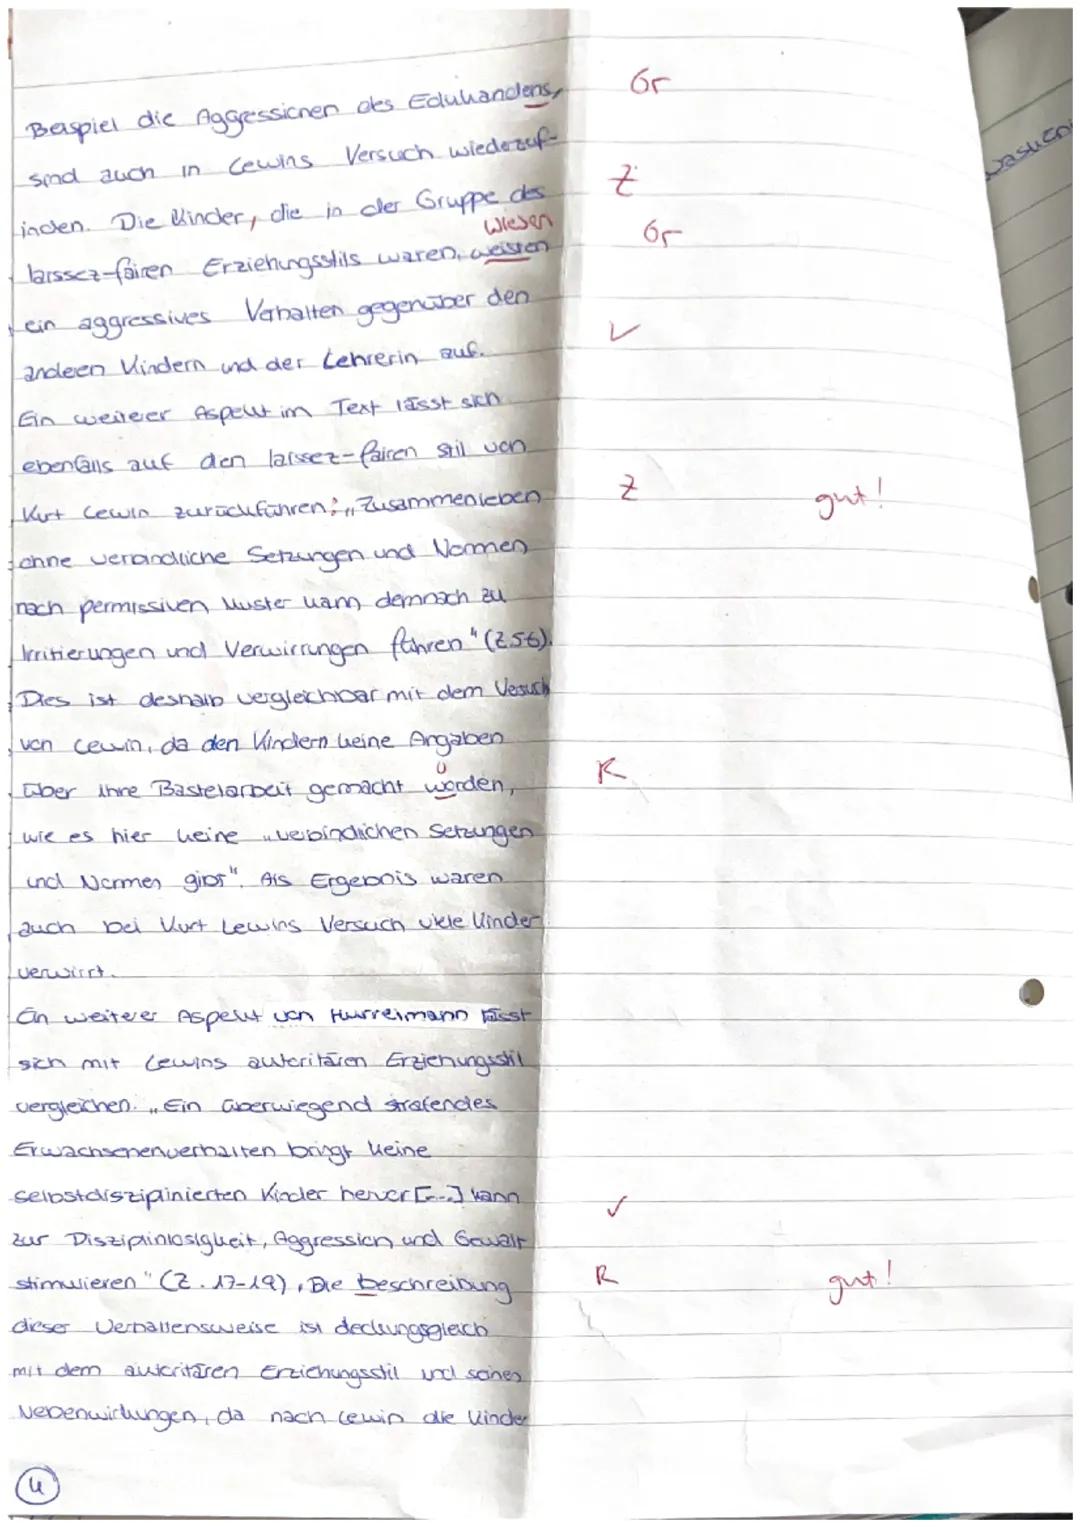 Beispiel die Aggressionen des Edukandens, Gr
sind auch in Lewins Versuch wiederzuf- Z
inden. Die Kinder, die in der Gruppe des
wiesen Gr
laissez-fairen Erziehungsstils waren, weisten
ein aggressives Verhalten gegenüber den
anderen Kindern und der Lehrerin auf. ✓
Ein weiterer Aspekt im Text lässt sich
ebenfalls auf den laissez-fairen Stil von
Kurt Lewin zurückführen: „Zusammenleben Z gut!
ohne verbindliche Setzungen und Normen
nach permissiven Muster kann demnach zu
Irritierungen und Verwirrungen führen" (Z.56).
Dies ist deshalb vergleichbar mit dem Versuch
von Lewin, da den Kindern keine Angaben
ü
über ihre Bastelarbeit gemacht worden, R
wie es hier keine „verbindlichen Setzungen
und Normen gibt". Als Ergebnis waren
auch bei Kurt Lewins Versuch viele Kinder
verwirrt.
Ein weiterer Aspekt von Hurrelmann lässt
sich mit Lewins autoritären Erziehungsstil
vergleichen. „Ein überwiegend strafendes
Erwachsenenverhalten bringt keine
selbstdisziplinierten Kinder hervor [...] kann ✓
zur Disziplinlosigkeit, Aggression und Gewalt
stimulieren" (Z. 17-19). Die beschreibung R gut!
dieser Verhaltensweise ist deckungsgleich
mit dem autoritären Erziehungsstil und seinen
Nebenwirkungen, da nach Lewin die Kinder
4